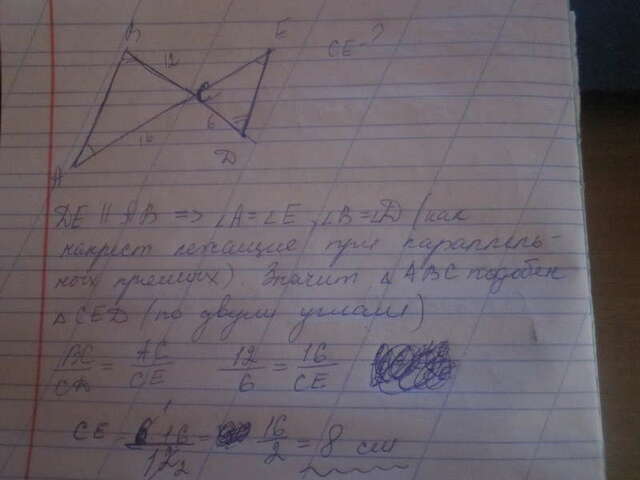 B
E
12
CE - ?
C
6
16
D
A
DE || AB => ∠A = ∠E, ∠B = ∠D (как
накрест лежащие при параллель-
ных прямых). Значит △ ABC подобен
△ CED (по двум углам)
BC/CD = AC/CE 12/6 = 16/CE
CE = 6 · 16/12 = 16/2 = 8 см